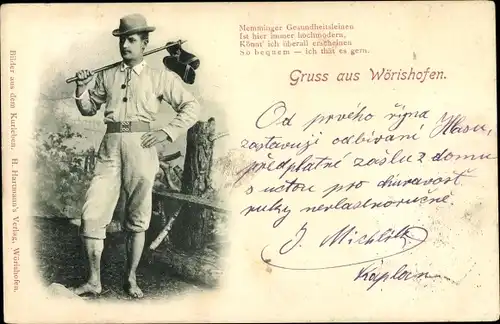 Memminger Gesundheitsleinen
Ist hier immer hochmodern,
Könnt' ich überall erscheinen
So bequem — ich thät es gern.
Gruss aus Wörishofen.
Bilder aus dem Kurleben. H. Hartmann's Verlag, Wörishofen.
Od prvého října
zastavuji odbírání Hlasu,
předplatné zašlu z domu
s úctou pro churavosť
ruky nevlastnoručně.
J.
Kaplan